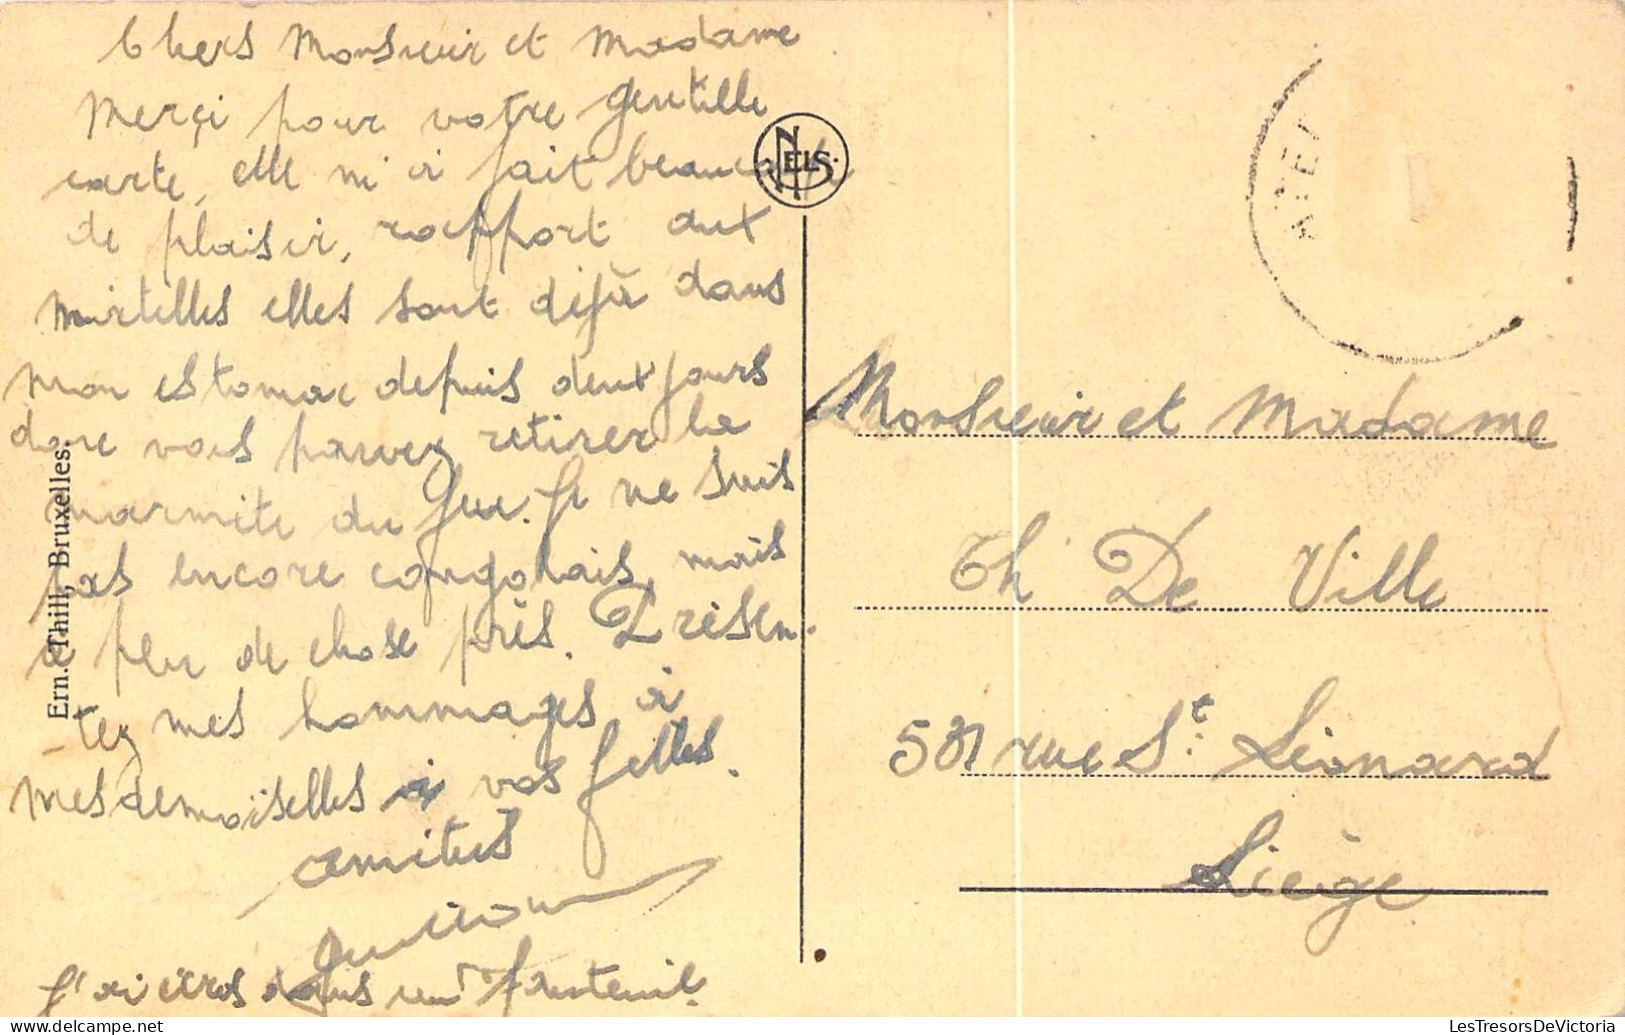 Chers Monsieur et Madame
Merçi pour votre gentille
carte, elle m'a fait beaucoup
de plaisir, rapport aux
mirtilles elles sont déjà dans
mon estomac depuis deux jours
donc vous pouvez retirer la
marmite du feu. Je ne suis
pas encore congolais, mais
à peu de chose près. Présen-
tez mes hommages à
mesdemoiselles à vos filles.
amitiés
J'ai écrit dans un fauteuil.
NELS
Ern. Thill, Bruxelles.
Monsieur et Madame
Th De Ville
531 rue St Léonard
Liège
LesTresorsDeVictoria